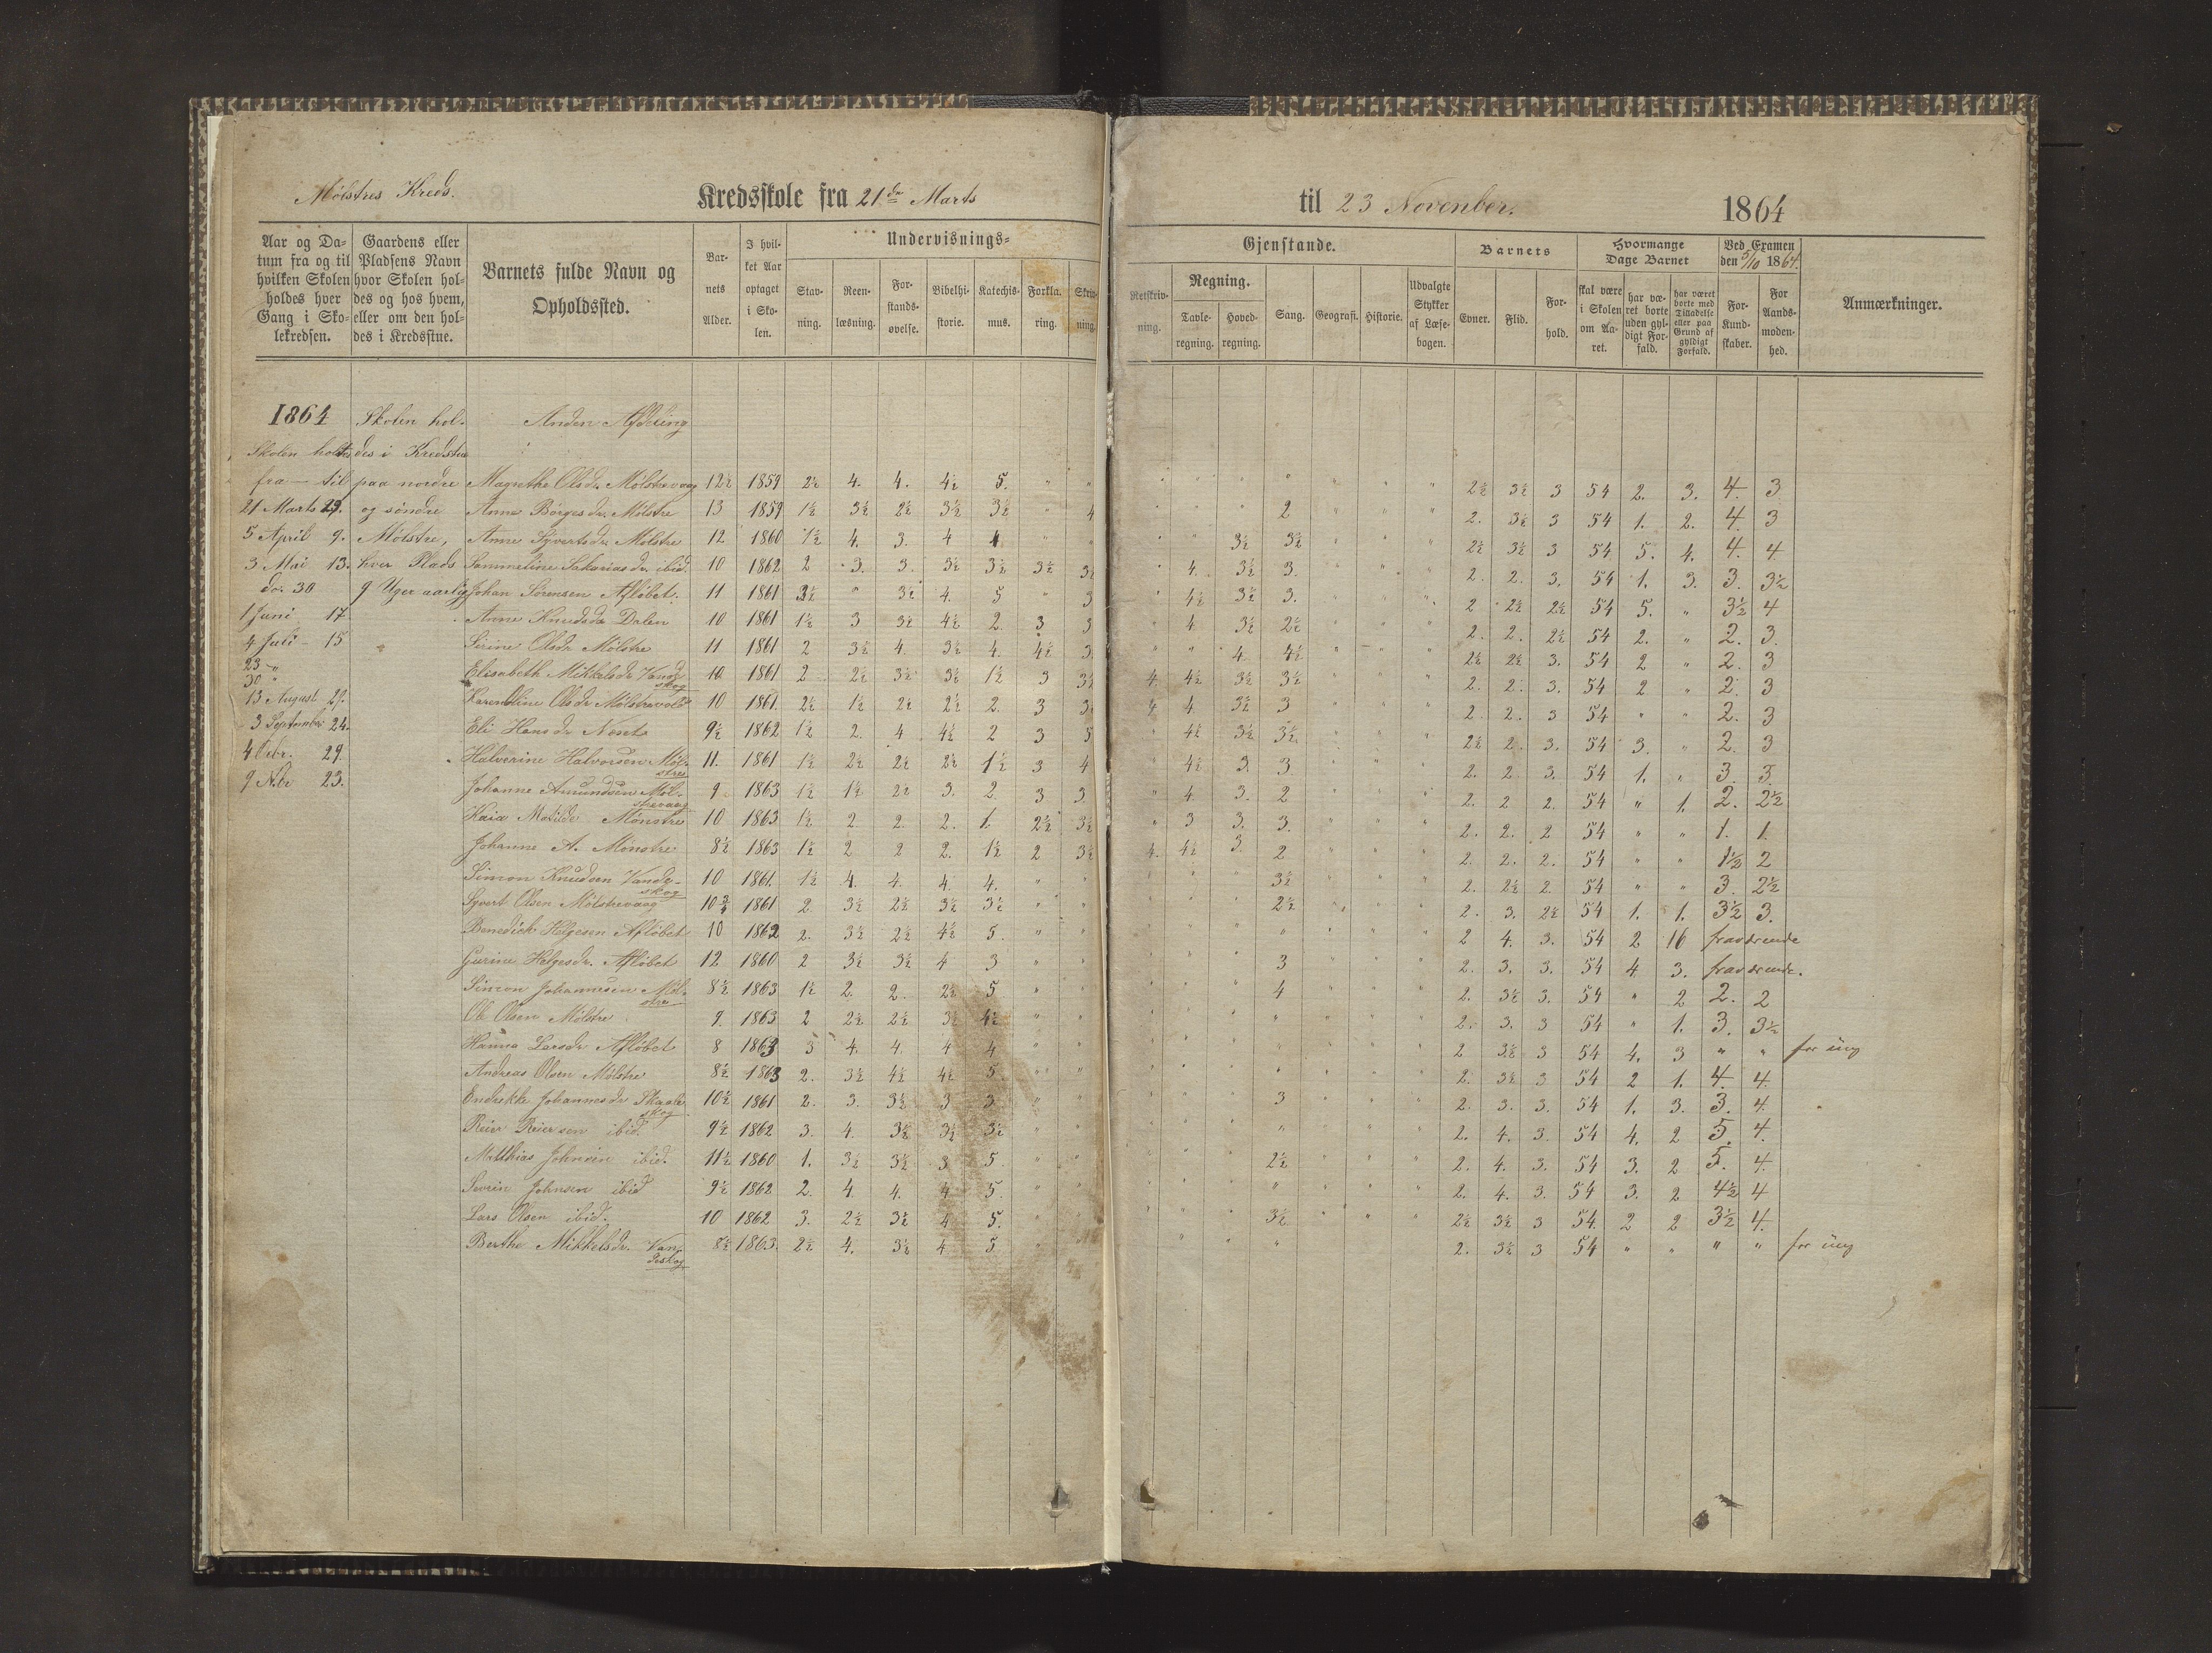 Mølstres Kreds.
Kredsskole fra 21de Marts til 23 November. 1864
Aar og Datum fra og til hvilken Skolen holdes hver Gang i Skolekredsen.
Gaardens eller Pladsens Navn hvor Skolen holdes og hos hvem, eller om den holdes i Kredsstue.
Barnets fulde Navn og Opholdssted.
Barnets Alder.
I hvilket Aar optaget i Skolen.
Undervisnings= Gjenstande.
Stavning. Reenlæsning. Forstandsøvelse. Bibelhistorie. Katechismus. Forklaring. Skrivning.
Retskrivning. Regning. Tavleregning. Hovedregning. Sang. Geografi. Historie. Udvalgte Stykker af Læsebogen.
Barnets Evner. Flid. Forhold.
Hvormange Dage Barnet skal være i Skolen om Aaret. har været borte uden gyldigt Forfald. har været borte med Tilladelse eller paa Grund af gyldigt Forfald.
Ved Examen den 5/10 1864. For Kundskaber. For Aandsmodenhed.
Anmærkninger.
1864 Skolen hol- Anden Afdeling
Skolen holdtes des i Kredstue
fra — til paa nordre Magrethe Olsdr. Mølstrevaag 12½ 1859 2½ 4. 4. 4½ 5. " " " " " " " " " 2½ 3½ 3 54 2. 3. 4. 3
21 Marts 23. og søndre Anne Børgesdr. Mølstre 13 1859 1½ 3½ 2½ 3½ 3½ " 4 " " " 2 " " " 2. 3½ 3 54 1. 2. 4. 3
5 April 9. Mølstre, Anne Syvertsdr. Mølstre 12 1860 1½ 4. 3. 4 4 " " " " 3½ 3½ " " " 2½ 3½ 3 54 5. 4. 4. 4
3 Mai 13. hver Plads Sammeline Sakariasdr. ibid. 10 1862 2 3. 3. 3½ 3½ 3½ 3½ " 4. 3½ 3. " " " 2. 2. 3. 54 1. 3. 3. 3½
do. 30 9 Uger aarlig Johan Sørensen Afløbet. 11 1861 3½ " 3½ 4. 5 " 3 " 4½ 3½ 3. " " " 2 2½ 2½ 54 5. " 3½ 4
1 Juni 17 Anne Knudsdr Dalen 10 1861 1½ 3 3½ 4½ 2. 3 3 " 4 3½ 2½ " " " 2. 2. 2½ 54 2. " 2. 3.
4 Juli - 15 Sirine Olsdr Mølstre 11 1861 2 3½ 4. 3½ 4. 4½ 3. " " 4 4½ " " " 2½ 2½ 3. 54 2 " 2. 3
23 "
30 " Elisabeth Mikkelsdr Vandeskog 10 1861 2 2½ 3½ 3½ 1½ 3 3½ 4. 4½ 3½ 3½ " " " 2. 2. 3. 54 2 " 2. 3
13 August 27. Karendline Olsdr Mølstrevold 10 1861. 2½ 1½ 2½ 2½ 2. 3 3½ 4 4 3½ 3 " " " 2. 2. 3 54 " " 2. 3
3 September 24. Eli Hansdr Næs 9½ 1862 1½ 2. 4 4½ 2 3 5 " 4½ 3½ 3½. " " " 2½ 2. 3. 54 3. " 2. 3
4 Octbr. 29. Halverine Halvorsen Mølstre 11. 1861 1½ 2½ 2½ 2½ 1½ 3 4 " 4½ 3. 3. " " " 2. 2. 3. 54 1. " 3. 3.
9 Nobr 23. Johanne Amundsen Mølstrevaag 9 1863 1½ 1½ 2½ 3. 2. 3 3 " 4 3. 2 " " " 2. 2 2. 54 " 1. 2. 2½
Kaia Matilde Mønstre 10 1863 1½ 2. 2. 2. 1. 2½ 3½ " 3 3. 3. " " " 2. 2. 2 54 " " 1. 1.
Johanne A. Mønstre 8½ 1863 1½ 2 2 2. 1½ 2 3½ 4. 4½ 3. 2 " " " 2. 2. 2. 54 " " 1½ 2
Simon Knudsen Vandeskog 10 1861. 1½ 4. 4. 4. 4. " " " " " 3½ " " " 2. 2½ 2. 54 " " 3. 2½
Syvert Olsen Mølstrevaag 10¾ 1861 2. 3½ 2½ 3½ 3½ " " " " " 2½ " " " 2. 3. 2½ 54 1. 1. 3½ 3.
Benedick Helgesen Afløbet 10 1862 2. 3½ 2½ 4½ 5. " " " " " " " " " 2 4. 3. 54 2 16 fraværende
Gurine Helgesdr. Afløbet 12 1860 2 3½ 3½ 4 3 " " " " " 3 " " " 2. 3. 3. 54 4. 3. fraværende.
Simon Johannesen Mølstre 8½ 1863 1½ 2. 2. 2½ 5 " " " " " 4 " " " 2. 3½ 3. 54 " 2 2. 2
Ole Olsen Mølstre 9. 1863 2 2½ 2½ 3½ 4½ " " " " " " " " " 2. 3. 3 54 " 1. 3. 3½
Hanna Larsdr Afløbet 8 1863 3 4. 4. 4 4 " " " " " " " " " 2 3½ 3 54 4. 3 " " for ung
Andreas Olsen Mølstre 8½ 1863 2. 3½ 4½ 4½ 5. " " " " " " " " " 2. 3½ 3 54 2 1. 4. 4.
Endrikke Johannesdr Skaaleskog 10½ 1861 2. 3. 3½ 3 3. " " " " " 3 " " " 2. 3. 3. 54 1. 3. 3. 4.
Reier Reiersen ibid. 9½ 1862 3. 4. 3½ 3½ 3½ " " " " " " " " " 2. 4. 3. 54 4. 2 5. 4.
Matthias Johnsen ibid. 11½ 1860 1. 3½ 3½ 3 5. " " " " " 2½ " " " 2. 4. 3. 54 3. 2 5. 4.
Severin Johnsen ibid 9½ 1862 2. 4. 4. 4 5. " " " " " " " " " 2. 4. 3. 54 3. 2 4½ 4
Lars Olsen ibid. 10 1862 3. 2½ 3½ 4 5. " " " " " 3½ " " " 2½ 3½ 3 54. 2 2 3½ 4.
Berthe Mikkelsdr. Vandeskog 8½ 1863. 2½ 4. 3½ 4 5 " " " " " 2. 3½ 3 54 " " " " for ung